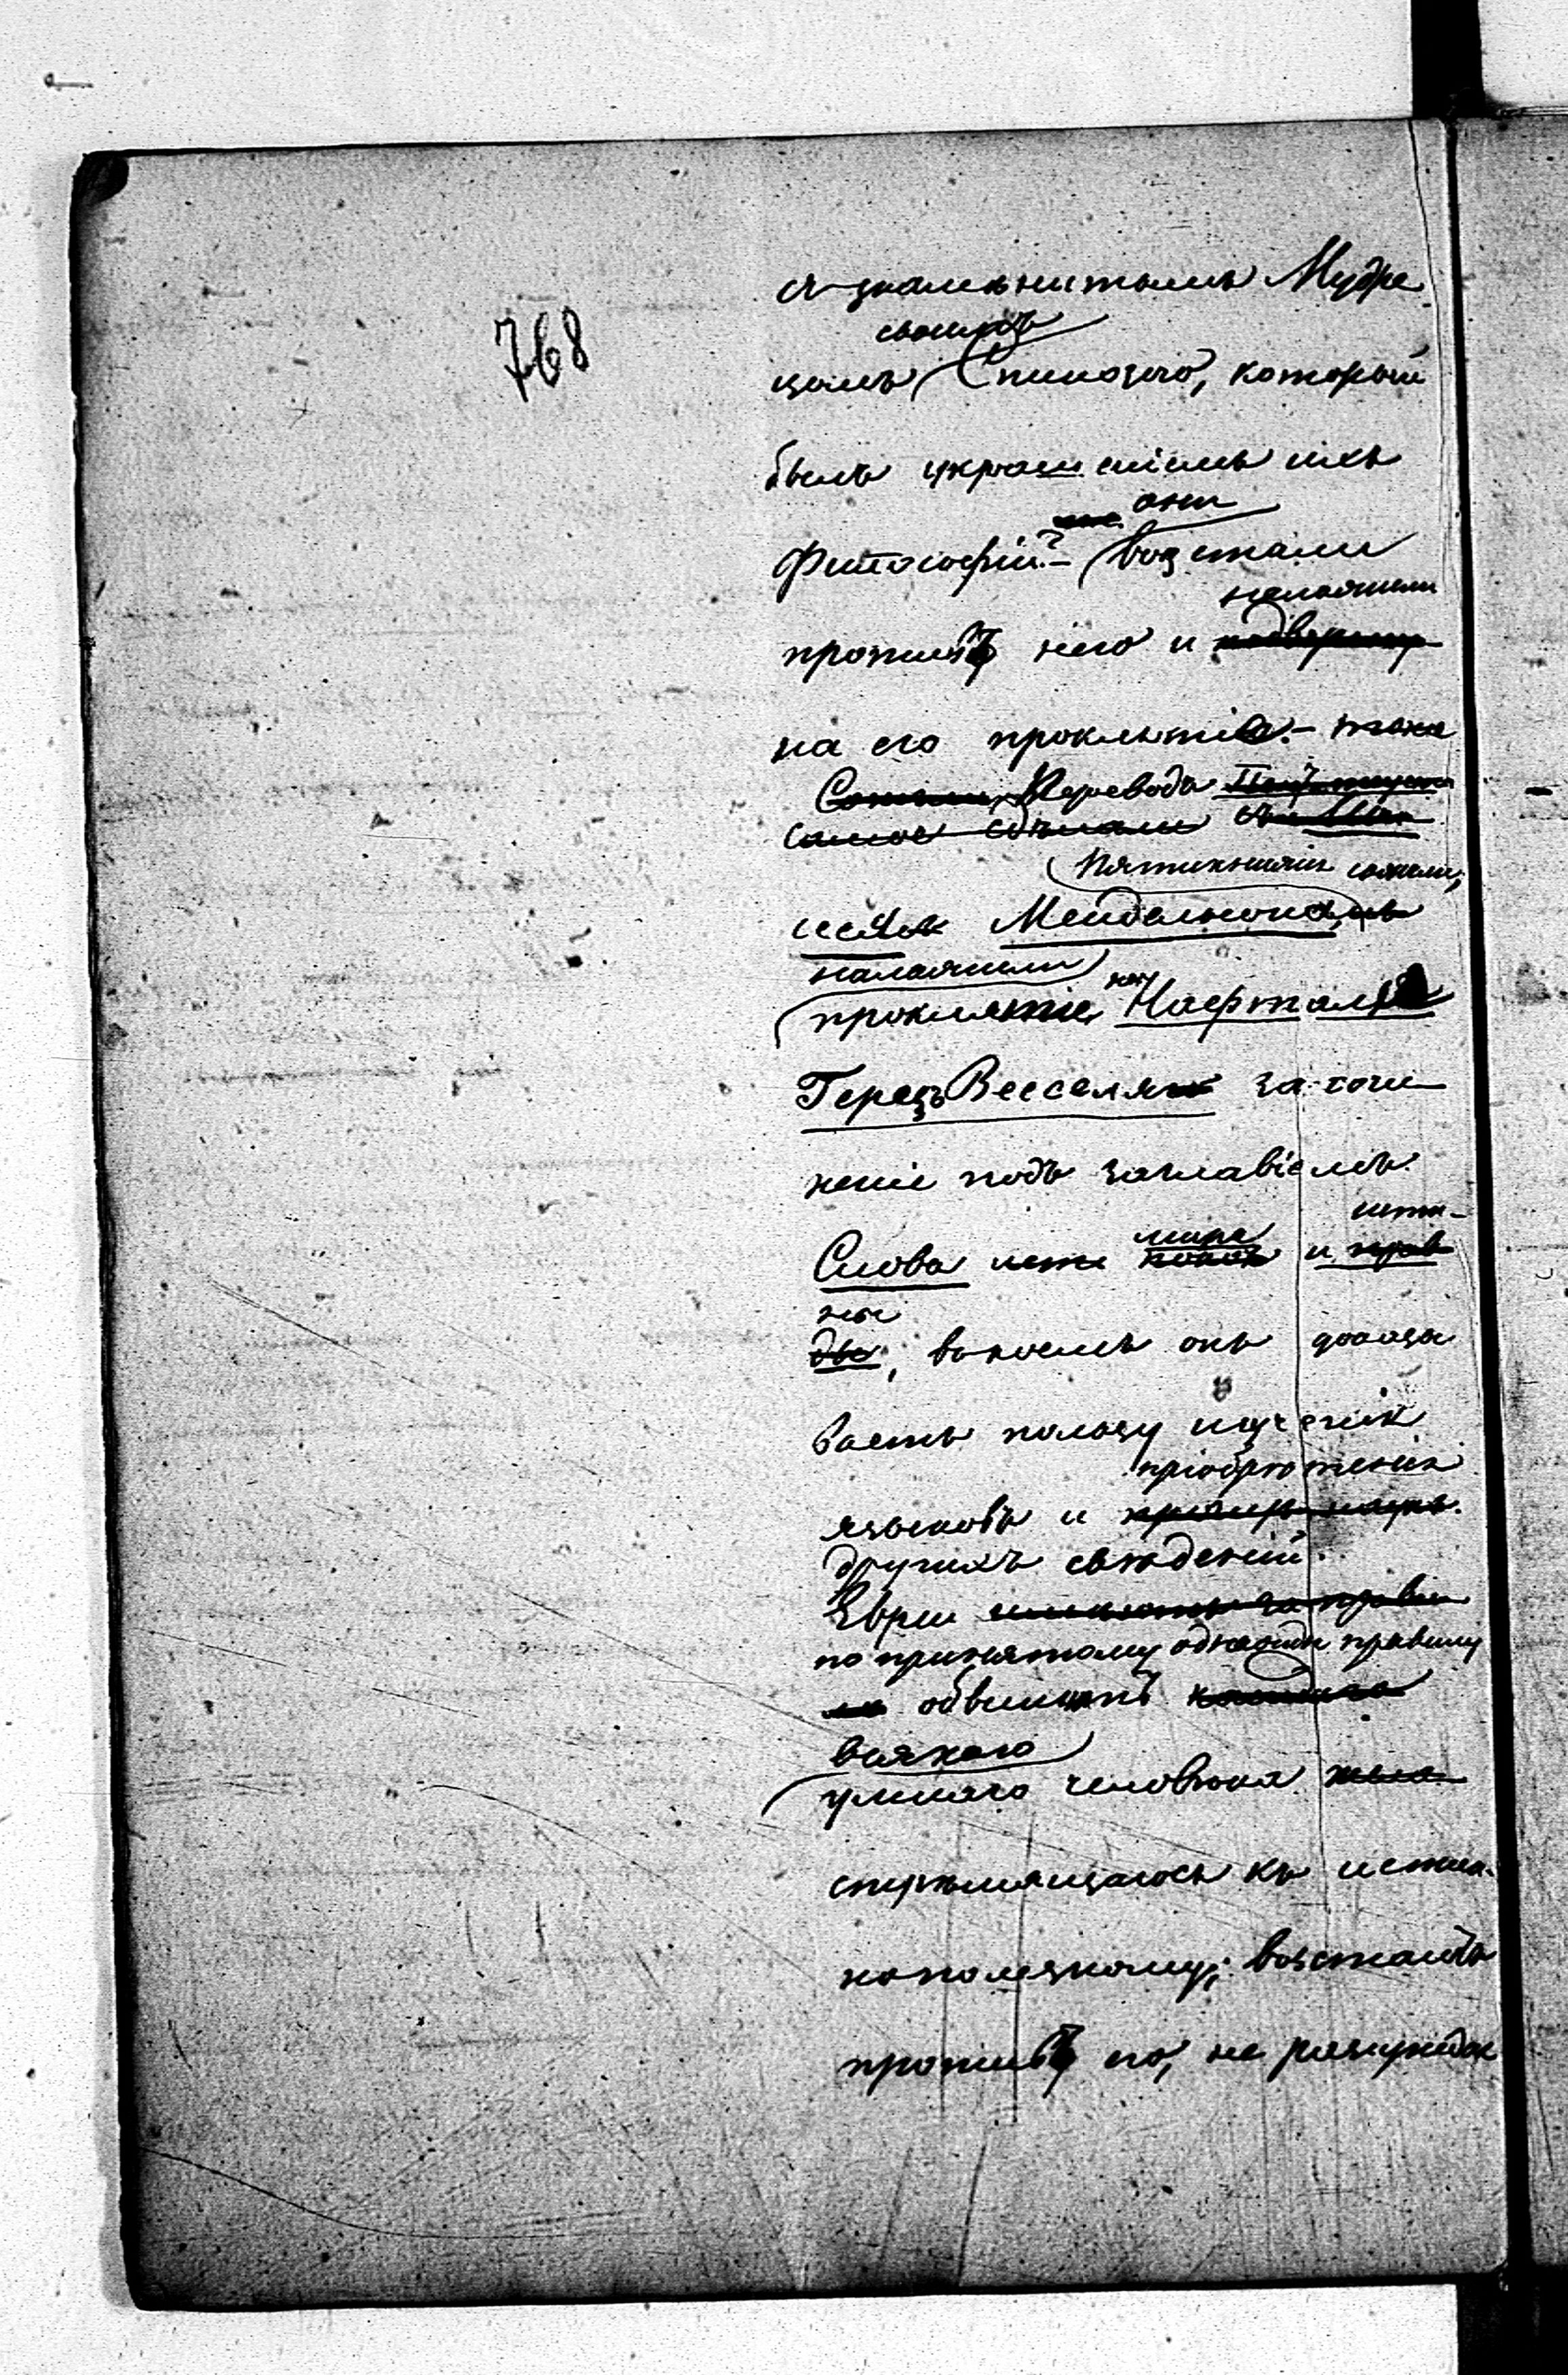 768
съ знаменитымъ Мудре
своимъ
цомъ Спинозою, который
былъ украшеніемъ ихъ
они
Философіи? – возстали
наложили
противъ него и
на его проклятіе. – тоже
Сожгли, Переводъ
самое сдѣлали съ
Пятикнижія сожгли,
сеял Мендельсона,
наложили
проклятіе на Нафтали
Герецъ Весселя за сочи
неніе подъ заглавіемъ:
исти-
мира
Слова исти покоя и прав
ны
ды, въ коемъ онъ доказы
ваетъ пользу изученія
пріобрѣтенія
языковъ и
другихъ свѣдѣній.
Евреи имѣютъ за прави
по принятому однажды правилу
ло обвинять каждаго
всякаго
умнаго человѣка
стремящагось къ истин
нополезному; возстаютъ
противъ его, не разсуждая